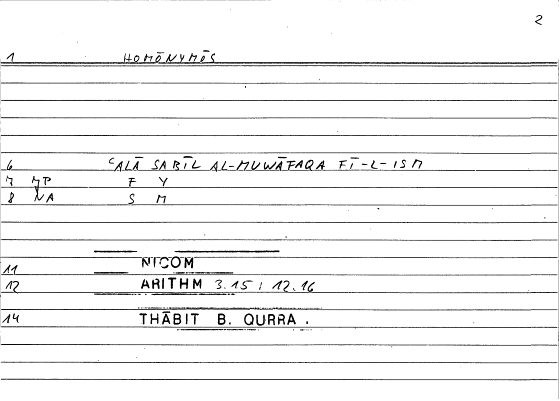 2
1 HOMŌNYMŌS
6 ʿALĀ SABĪL AL-MUWĀFAQA FĪ-L-ISM
7 MP F Y
8 NA S M
11 NICOM
12 ARITHM 3.15; 12.16
14 THĀBIT B. QURRA.